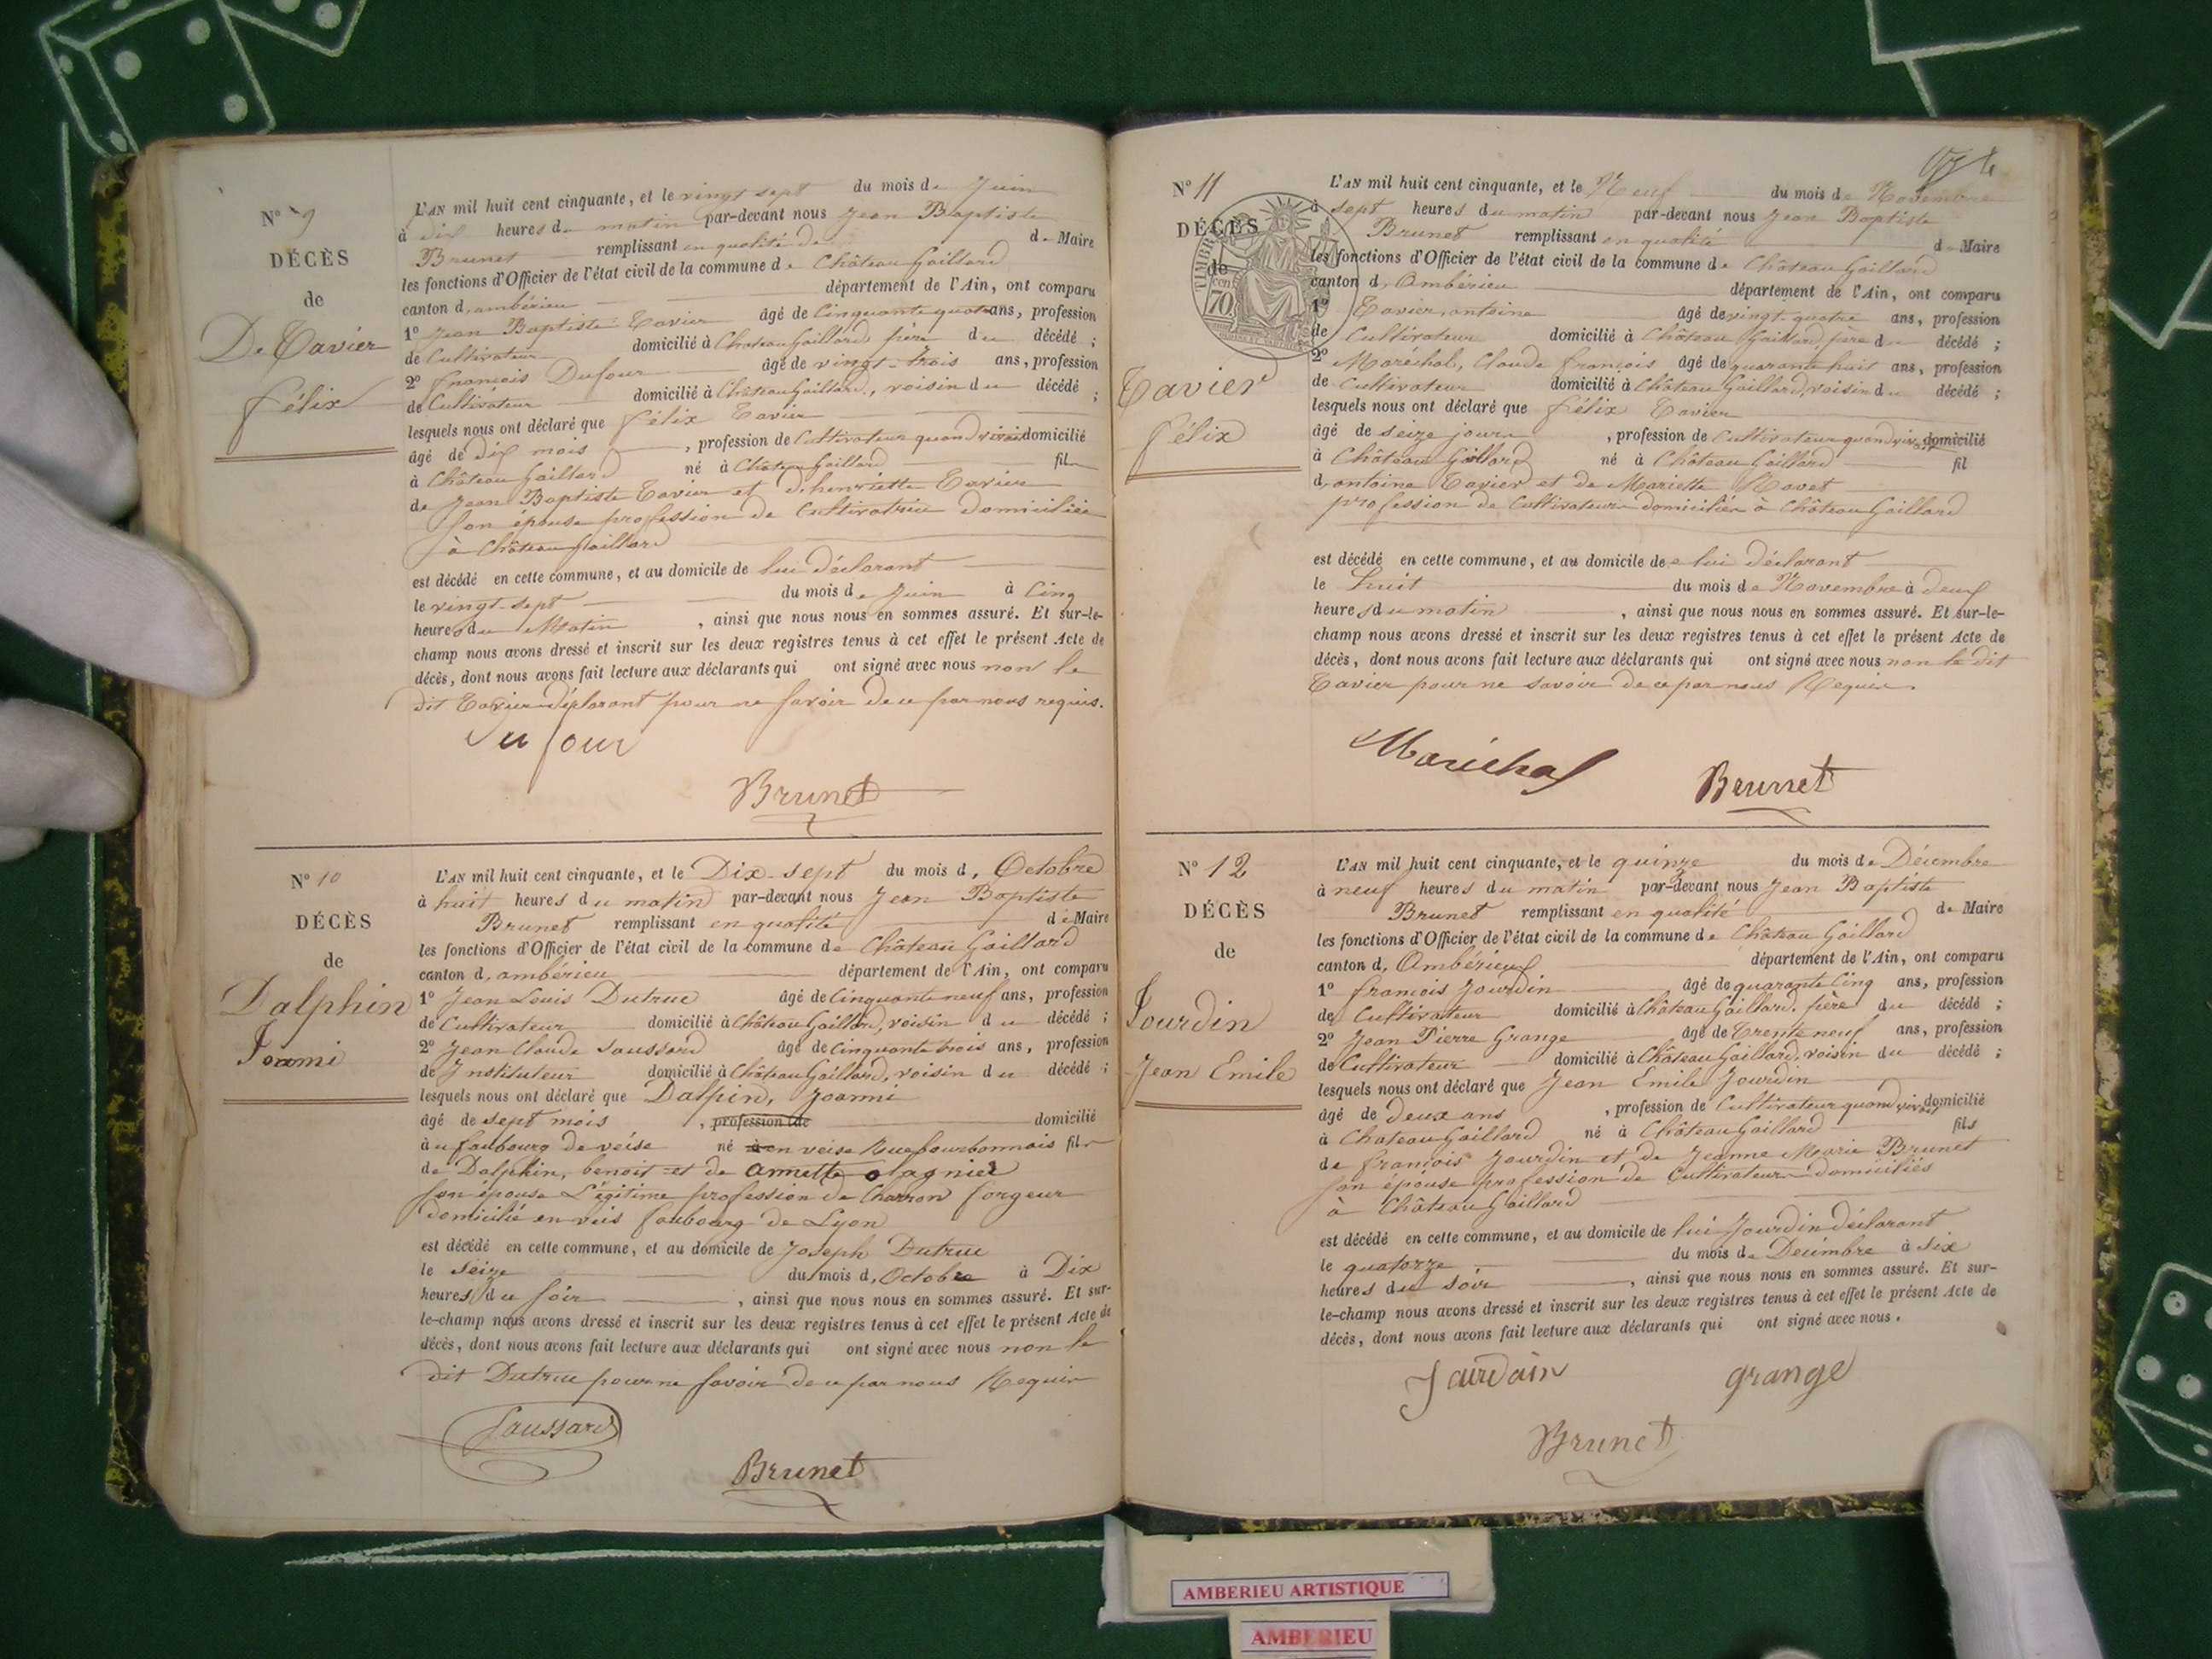 N° 9
DÉCÈS
de
De Tavier
Félix
L'AN mil huit cent cinquante, et le vingt sept du mois de Juin
à dix heures du matin par-devant nous Jean Baptiste
Brunet remplissant en qualité de de Maire
les fonctions d'Officier de l'état civil de la commune de Château Gaillard
canton d'ambérieu département de l'Ain, ont comparu
1° Jean Baptiste Tavier âgé de Cinquante quatre ans, profession
de Cultivateur domicilié à Château Gaillard, père du décédé ;
2° François Dufour âgé de vingt-trois ans, profession
de Cultivateur domicilié à Château Gaillard, voisin du décédé ;
lesquels nous ont déclaré que Félix Tavier
âgé de dix mois , profession de Cultivateur quand vivait domicilié
à Château Gaillard né à Château Gaillard fils
de Jean Baptiste Tavier et d'henriette Tavier
son épouse profession de Cultivatrice domiciliée
à Château Gaillard
est décédé en cette commune, et au domicile de lui déclarant
le vingt-sept du mois de Juin à Cinq
heures du Matin , ainsi que nous nous en sommes assuré. Et sur-le-
champ nous avons dressé et inscrit sur les deux registres tenus à cet effet le présent Acte de
décès, dont nous avons fait lecture aux déclarants qui ont signé avec nous non le
dit Tavier déclarant pour ne savoir de ce par nous requis.
Dufour
Brunet
N° 10
DÉCÈS
de
Dalphin
Joanni
L'AN mil huit cent cinquante, et le Dix-sept du mois d'Octobre
à huit heures du matin par-devant nous Jean Baptiste
Brunet remplissant en qualité de Maire
les fonctions d'Officier de l'état civil de la commune de Château Gaillard
canton d'ambérieu département de l'Ain, ont comparu
1° Jean Louis Dutruc âgé de Cinquante neuf ans, profession
de Cultivateur domicilié à Château Gaillard, voisin du décédé ;
2° Jean Claude Saussard âgé de Cinquante trois ans, profession
de Instituteur domicilié à Château Gaillard, voisin du décédé ;
lesquels nous ont déclaré que Dalpin, Joanni
âgé de sept mois , profession de domicilié
à au faubourg de veise né à en veise Rue bourbonnais fils
de Dalphin, benoit et de Annette Olagnier
son épouse Légitime profession de Charron forgeur
domicilié en veis faubourg de Lyon
est décédé en cette commune, et au domicile de Joseph Dutruc
le Seize du mois d'Octobre à Dix
heures du soir , ainsi que nous nous en sommes assuré. Et sur-
le-champ nous avons dressé et inscrit sur les deux registres tenus à cet effet le présent Acte de
décès, dont nous avons fait lecture aux déclarants qui ont signé avec nous non le
dit Dutruc pour ne savoir de ce par nous Requis
Saussard
Brunet
N° 11
DÉCÈS
de
TIMBRE
70
Tavier
Félix
L'AN mil huit cent cinquante, et le Neuf du mois de Novembre
à sept heures du matin par-devant nous Jean Baptiste
Brunet remplissant en qualité de Maire
les fonctions d'Officier de l'état civil de la commune de Château Gaillard
canton d'Ambérieu département de l'Ain, ont comparu
1° Tavier, antoine âgé de vingt-quatre ans, profession
de Cultivateur domicilié à Château Gaillard, père du décédé ;
2° Maréchal, Claude françois âgé de quarante huit ans, profession
de Cultivateur domicilié à Château Gaillard, voisin du décédé ;
lesquels nous ont déclaré que Félix Tavier
âgé de seize jours , profession de Cultivateur quand vivait domicilié
à Château Gaillard né à Château Gaillard fil
d'antoine Tavier et de Mariette
profession de Cultivateurs domiciliés à Château Gaillard
est décédé en cette commune, et au domicile de lui déclarant
le huit du mois de Novembre à deux
heures du matin , ainsi que nous nous en sommes assuré. Et sur-le-
champ nous avons dressé et inscrit sur les deux registres tenus à cet effet le présent Acte de
décès, dont nous avons fait lecture aux déclarants qui ont signé avec nous non le dit
Tavier pour ne savoir de ce par nous Requis.
Maréchal
Brunet
N° 12
DÉCÈS
de
Jourdin
Jean Emile
L'AN mil huit cent cinquante, et le quinze du mois de Décembre
à neuf heures du matin par-devant nous Jean Baptiste
Brunet remplissant en qualité de Maire
les fonctions d'Officier de l'état civil de la commune de Château Gaillard
canton d'Ambérieux département de l'Ain, ont comparu
1° françois Jourdin âgé de quarante Cinq ans, profession
de Cultivateur domicilié à Château Gaillard, père du décédé ;
2° Jean Pierre Grange âgé de Trente neuf ans, profession
de Cultivateur domicilié à Château Gaillard, voisin du décédé ;
lesquels nous ont déclaré que Jean Emile Jourdin
âgé de deux ans , profession de Cultivateur quand vivait domicilié
à Chateau Gaillard né à Château Gaillard fils
de françois Jourdin et de Jeanne Marie Brunet
son épouse profession de Cultivateurs domiciliés
à Château Gaillard
est décédé en cette commune, et au domicile de lui Jourdin déclarant
le quatorze du mois de Décembre à six
heures du soir , ainsi que nous nous en sommes assuré. Et sur-
le-champ nous avons dressé et inscrit sur les deux registres tenus à cet effet le présent Acte de
décès, dont nous avons fait lecture aux déclarants qui ont signé avec nous.
Jourdain
grange
Brunet
AMBERIEU ARTISTIQUE
AMBERIEU